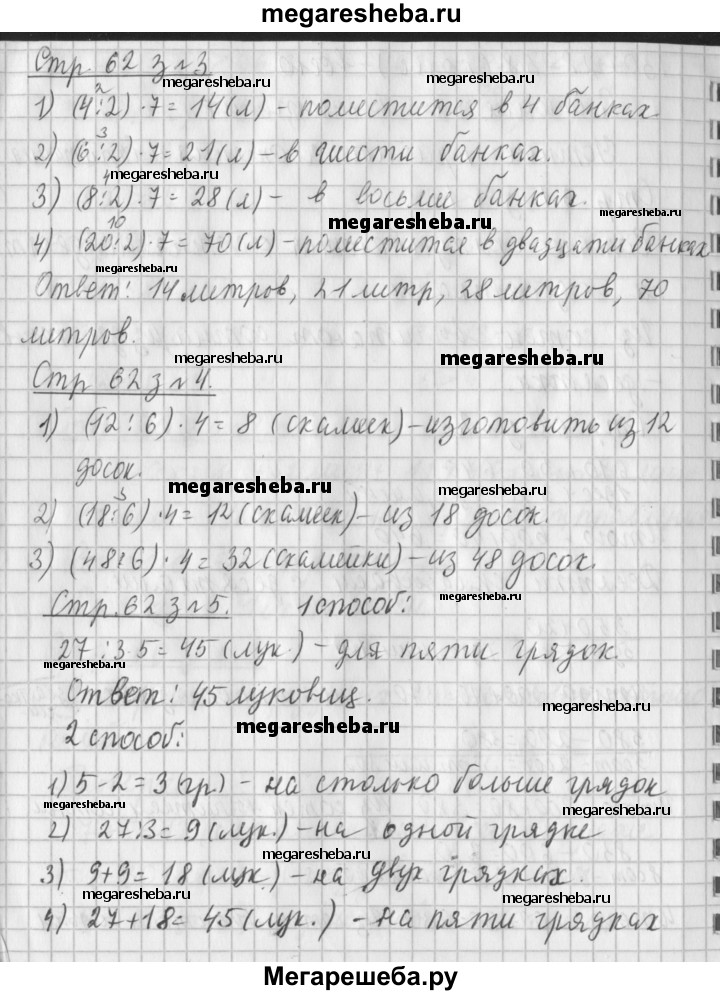 megaresheba.ru
Стр. 62 з №3
megaresheba.ru
megaresheba.ru
2
1) (4:2)·7=14(л) - поместится в 4 банках.
3
2) (6:2)·7=21(л) - в шести банках.
megaresheba.ru
4
3) (8:2)·7=28(л) - в восьми банках.
megaresheba.ru
megaresheba.ru
10
4) (20:2)·7=70(л) - поместится в двадцати банках
megaresheba.ru
Ответ: 14 литров, 21 литр, 28 литров, 70
литров.
megaresheba.ru
megaresheba.ru
Стр 62 з №4.
1) (12:6)·4=8 (скамеек) - изготовить из 12
досок.
megaresheba.ru
megaresheba.ru
3
2) (18:6)·4=12(скамеек) - из 18 досок.
3) (48:6)·4=32(скамейки) - из 48 досок.
megaresheba.ru
Стр. 62 з №5. 1 способ:
27:3·5=45(лук.) - для пяти грядок.
megaresheba.ru
Ответ: 45 луковиц.
megaresheba.ru
megaresheba.ru
2 способ:
1) 5-2=3(гр) - на столько больше грядок
megaresheba.ru
megaresheba.ru
2) 27:3=9(лук.) - на одной грядке
megaresheba.ru
3) 9+9=18(лук.) - на двух грядках.
megaresheba.ru
megaresheba.ru
4) 27+18=45(лук.) - на пяти грядках
Мегарешеба.ру